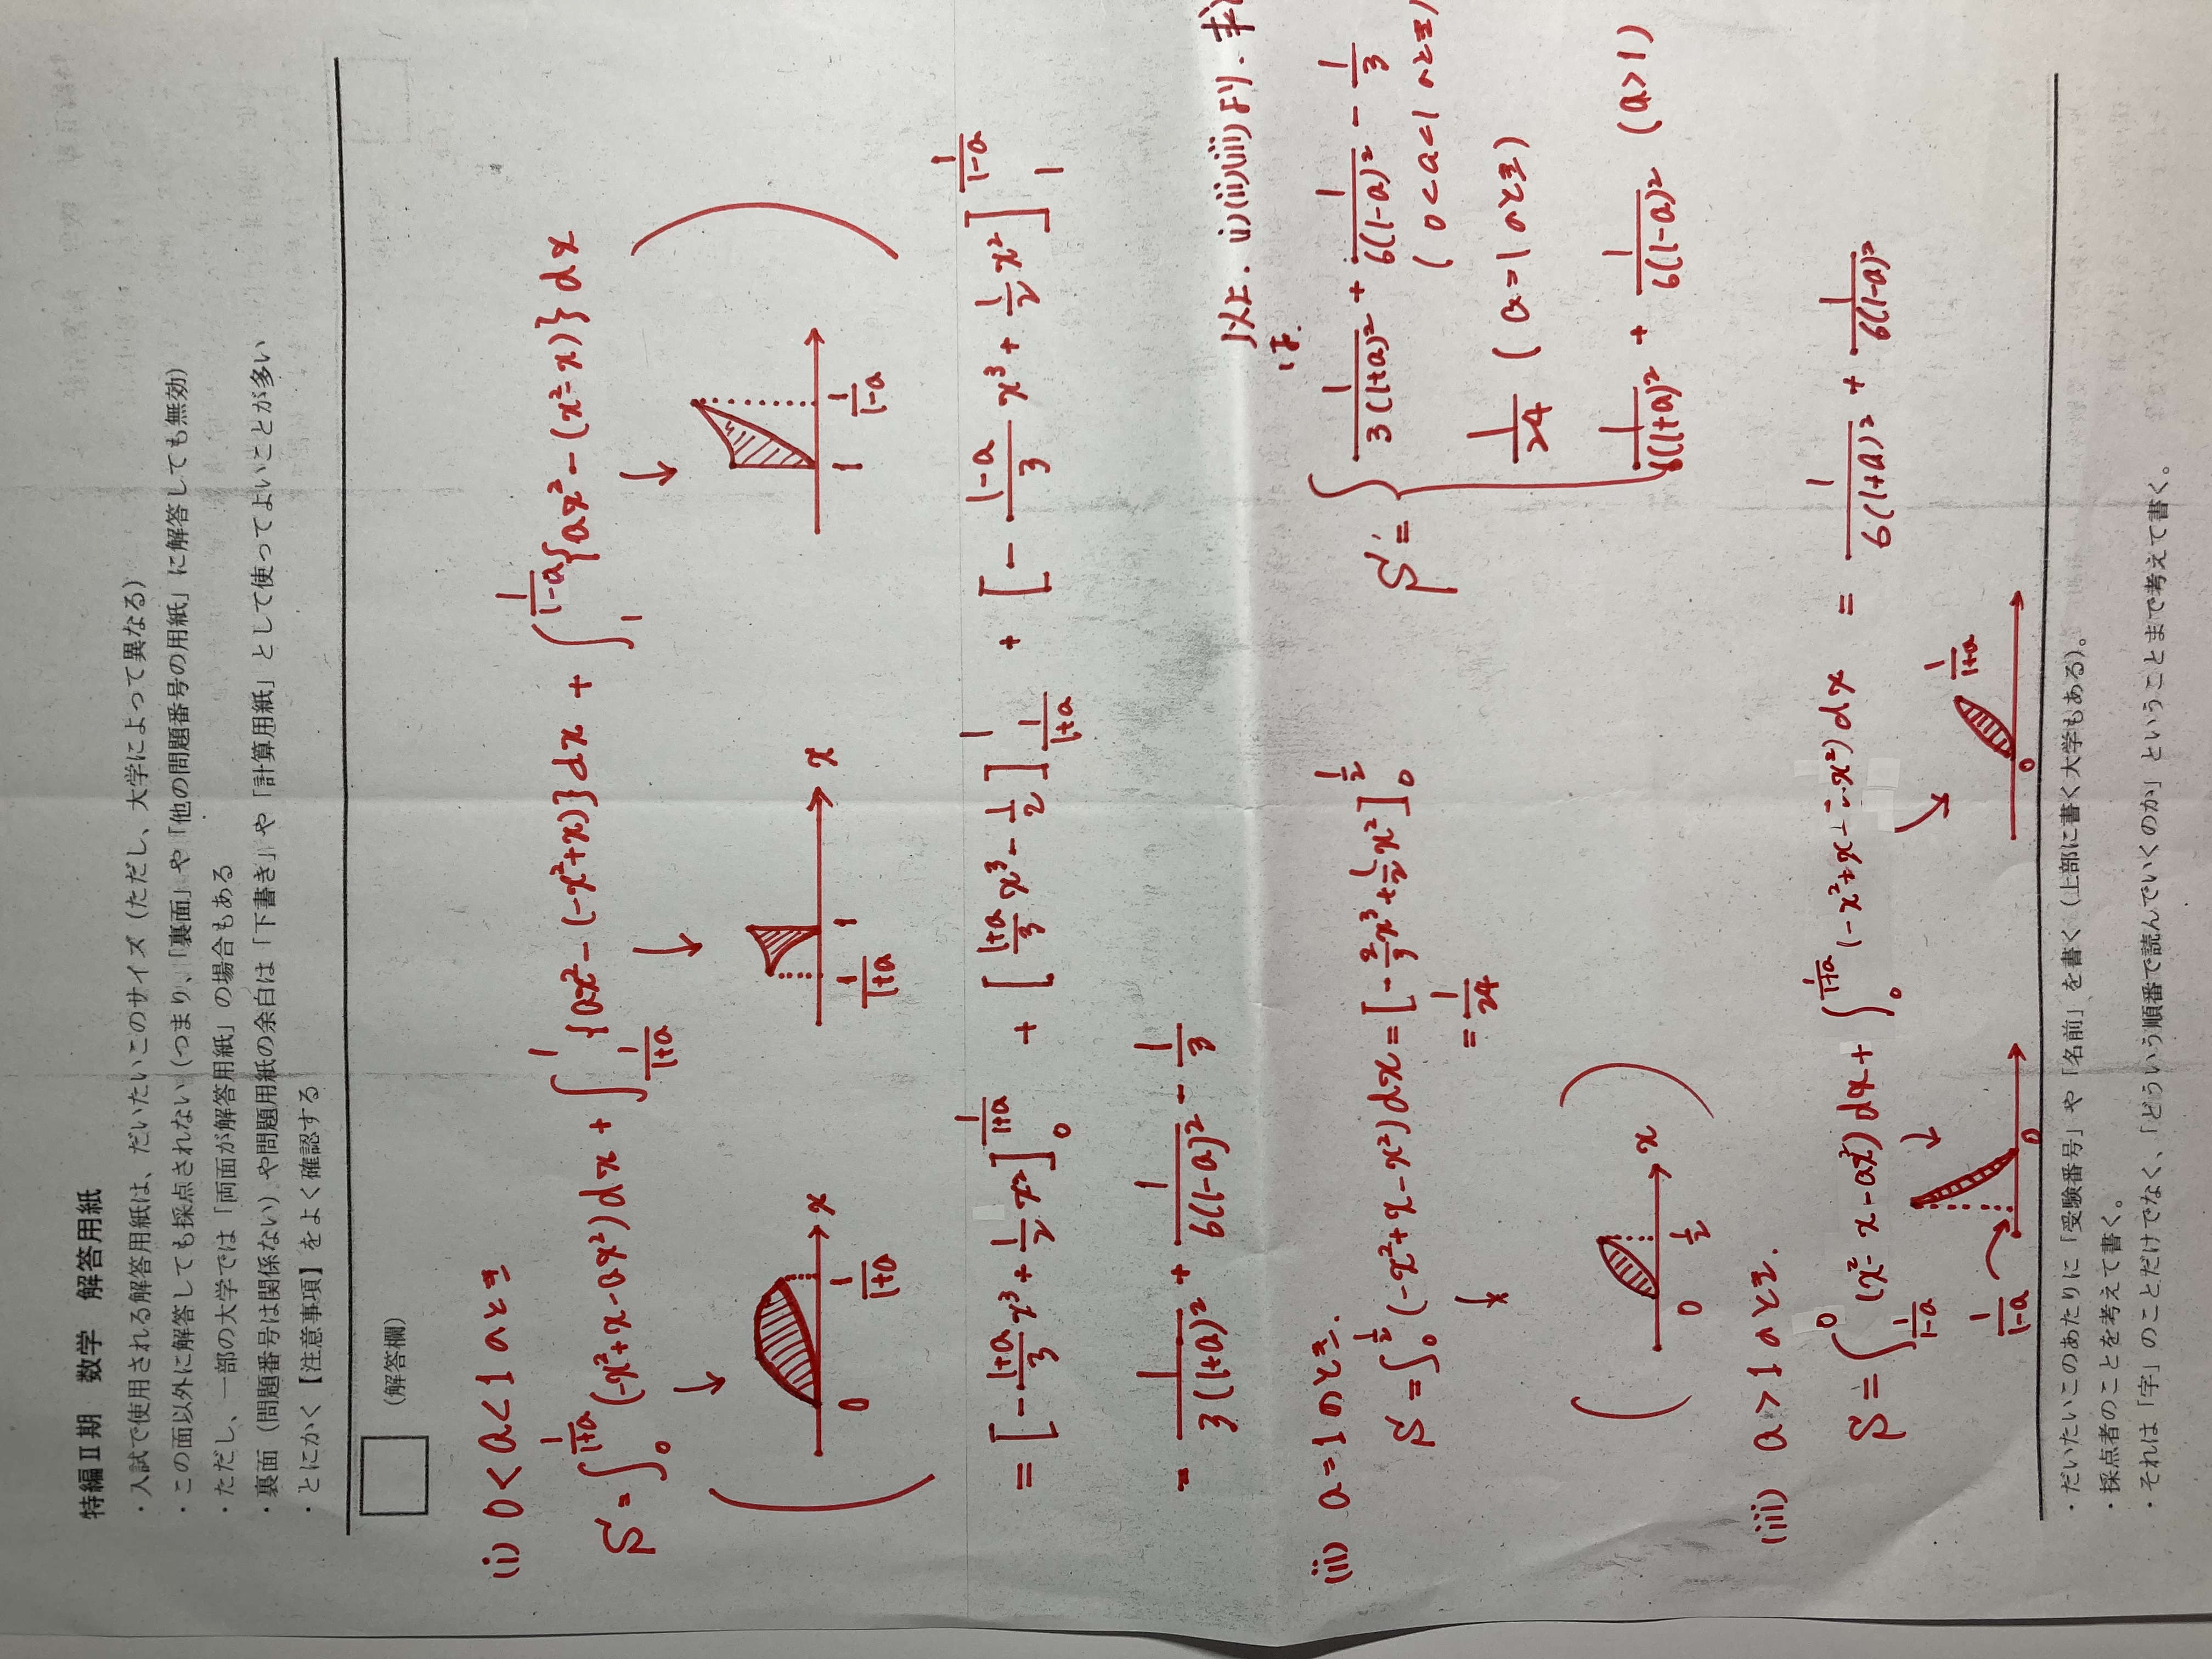 特編Ⅱ期　数学　解答用紙
・入試で使用される解答用紙は、だいたいこのサイズ（ただし、大学によって異なる）
・この面以外に解答しても採点されない（つまり、「裏面」や「他の問題番号の用紙」に解答しても無効）
・ただし、一部の大学では「両面が解答用紙」の場合もある
・裏面（問題番号は関係ない）や問題用紙の余白は「下書き」や「計算用紙」として使ってよいことが多い
・とにかく【注意事項】をよく確認する
（解答欄）
(i) 0<a<1のとき
S = ∫_0^{1/(1+a)} (-x²+x-ax²)dx + ∫_{1/(1+a)}^1 {ax²-(-x²+x)}dx + ∫_1^{1/(1-a)} {ax²-(x²-x)}dx
↓ ↓ ↓
0 1/(1+a) x
1/(1+a) 1 x
1 1/(1-a)
= [-(1+a)/3 x³ + 1/2 x²]_0^{1/(1+a)} + [(1+a)/3 x³ - 1/2]_{1/(1+a)}^1 + [-(1-a)/3 x³ + 1/2 x²]_1^{1/(1-a)}
= 1/(3(1+a)²) + 1/(6(1-a)²) - 1/3
(ii) a=1のとき.
S = ∫_0^{1/2} (-x²+x-x²)dx = [-2/3 x³ + 1/2 x²]_0^{1/2}
= 1/24
0 1/2 x
(iii) a>1のとき.
S = ∫_{1/(1-a)}^0 (x²-x-ax²)dx + ∫_0^{1/(1+a)} (-x²+x-x²)dx = 1/(6(1+a)²) + 1/(6(1-a)²)
1/(1-a) 0
0 1/(1+a)
以上. (i)(ii)(iii)より.
は.
S = { 1/(3(1+a)²) + 1/(6(1-a)²) - 1/3
(0<a=1のとき)
1/24 (a=1のとき)
1/(6(1+a)²) + 1/(6(1-a)²) (a>1)
・だいたいこのあたりに「受験番号」や「名前」を書く（上部に書く大学もある）。
・採点者のことを考えて書く。
・それは「字」のことだけでなく、「どういう順番で読んでいくのか」ということまで考えて書く。